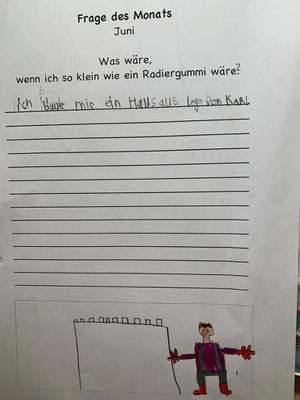 Frage des Monats
Juni
Was wäre,
wenn ich so klein wie ein Radiergummi wäre?
Ich baue mir ein Haus aus lego von KARL